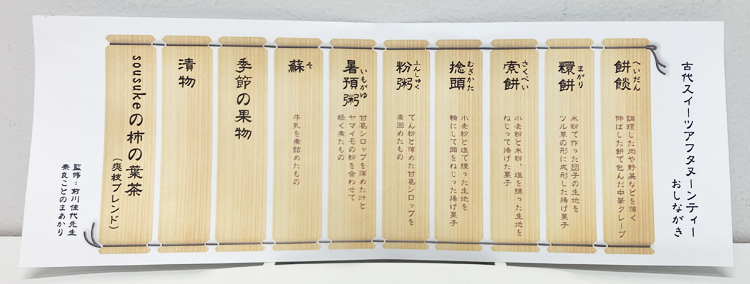 古代スイーツアフタヌーンティー
おしながき
へいだん
餅餤
調理した肉や野菜などを薄く
伸ばした餅で包んだ中華クレープ
まがり
糫餅
米粉で作った団子の生地を
ツル草の形に成形した揚げ菓子
さくべい
索餅
小麦粉と米粉、塩を練った生地を
ねじって揚げた菓子
むぎかた
捻頭
小麦粉と塩で練った生地を
輪にして頭をねじった揚げ菓子
ふんじゅく
粉粥
でん粉と薄めた甘葛シロップを
煮固めたもの
いもがゆ
暑預粥
甘葛シロップを薄めた汁と
ヤマイモの粉を合わせて
軽く煮たもの
そ
蘇
牛乳を煮詰めたもの
季節の果物
漬物
sousukeの柿の葉茶
(爽枝ブレンド)
監修:前川佳代先生
奈良ことのまあかり